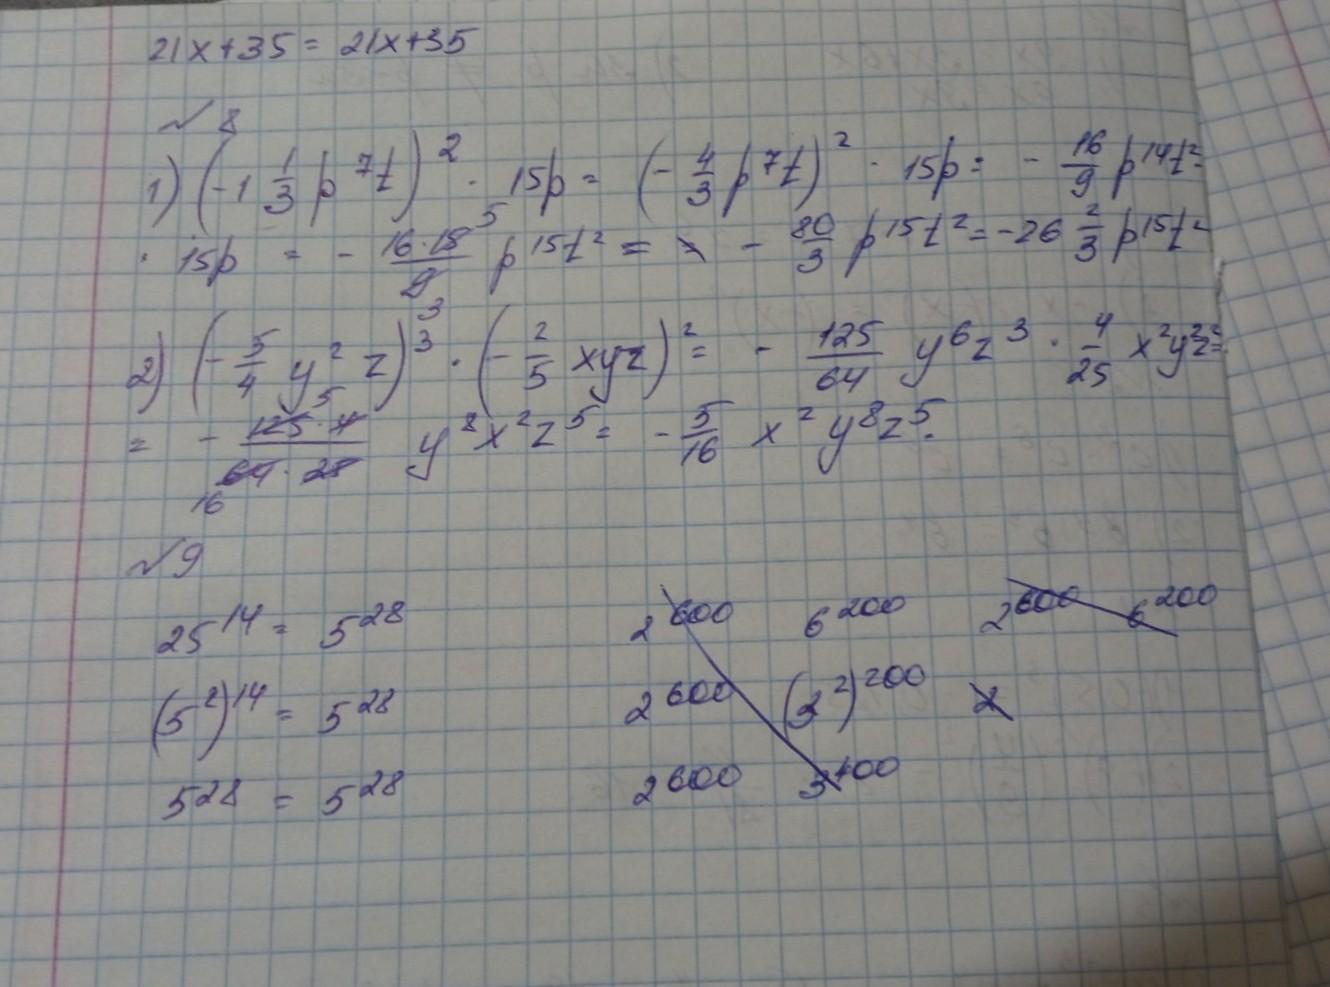 21x+35 = 21x+35
№ 8
1) (-1 1/3 p⁷t)² · 15p = (-4/3 p⁷t)² · 15p = - 16/9 p¹⁴t² ·
· 15p = - (16·15)/9 p¹⁵t² = - 80/3 p¹⁵t² = -26 2/3 p¹⁵t²
5
3
2) (-5/4 y² z)³ · (-2/5 xyz)² = - 125/64 y⁶z³ · 4/25 x²y²z² =
= - (125·4)/(64·25) y⁸x²z⁵ = - 5/16 x²y⁸z⁵.
5
16
№ 9
25¹⁴ = 5²⁸
(5²)¹⁴ = 5²⁸
5²⁸ = 5²⁸
2⁶⁰⁰ 6²⁰⁰ 2⁶⁰⁰ 6²⁰⁰
2⁶⁰⁰ (3²)²⁰⁰ 2
2⁶⁰⁰ 3⁴⁰⁰